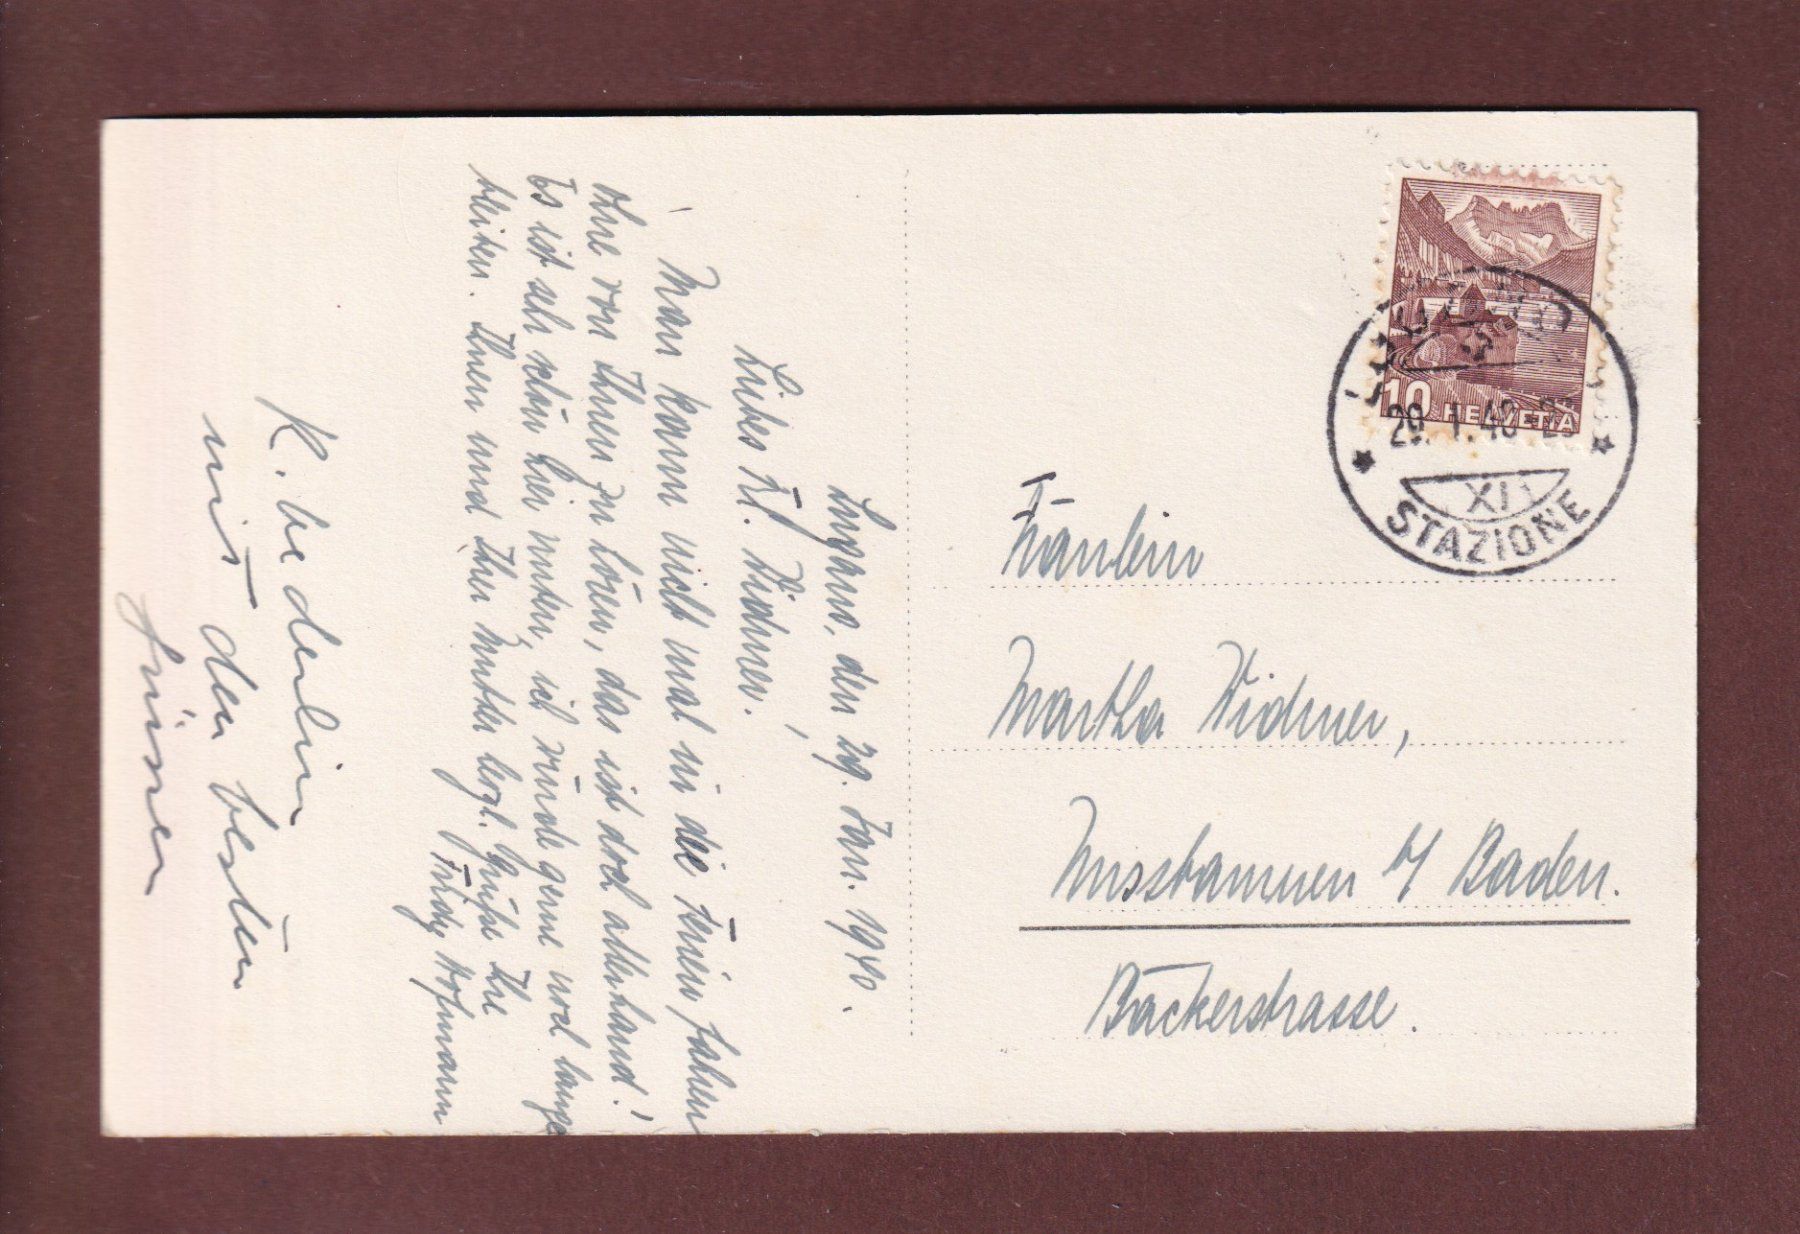 Lugano, den 29. Jan. 1940.
Liebes Frl. Widmer,
Man kann nicht mal in die Ferien fahren
ohne von Ihnen zu hören, das ist doch allerhand!
Es ist sehr schön hier unten, ich würde gerne noch lange
bleiben. Ihnen und Ihrer Mutter herzl. Grüsse Ihre
Trudy Hofmann
mit den besten
Grüssen
Fräulein
Martha Widmer,
Nussbaumen b/ Baden.
Bäckerstrasse.
LUGANO
29. I. 40 - 23
XI
STAZIONE
10 HELVETIA